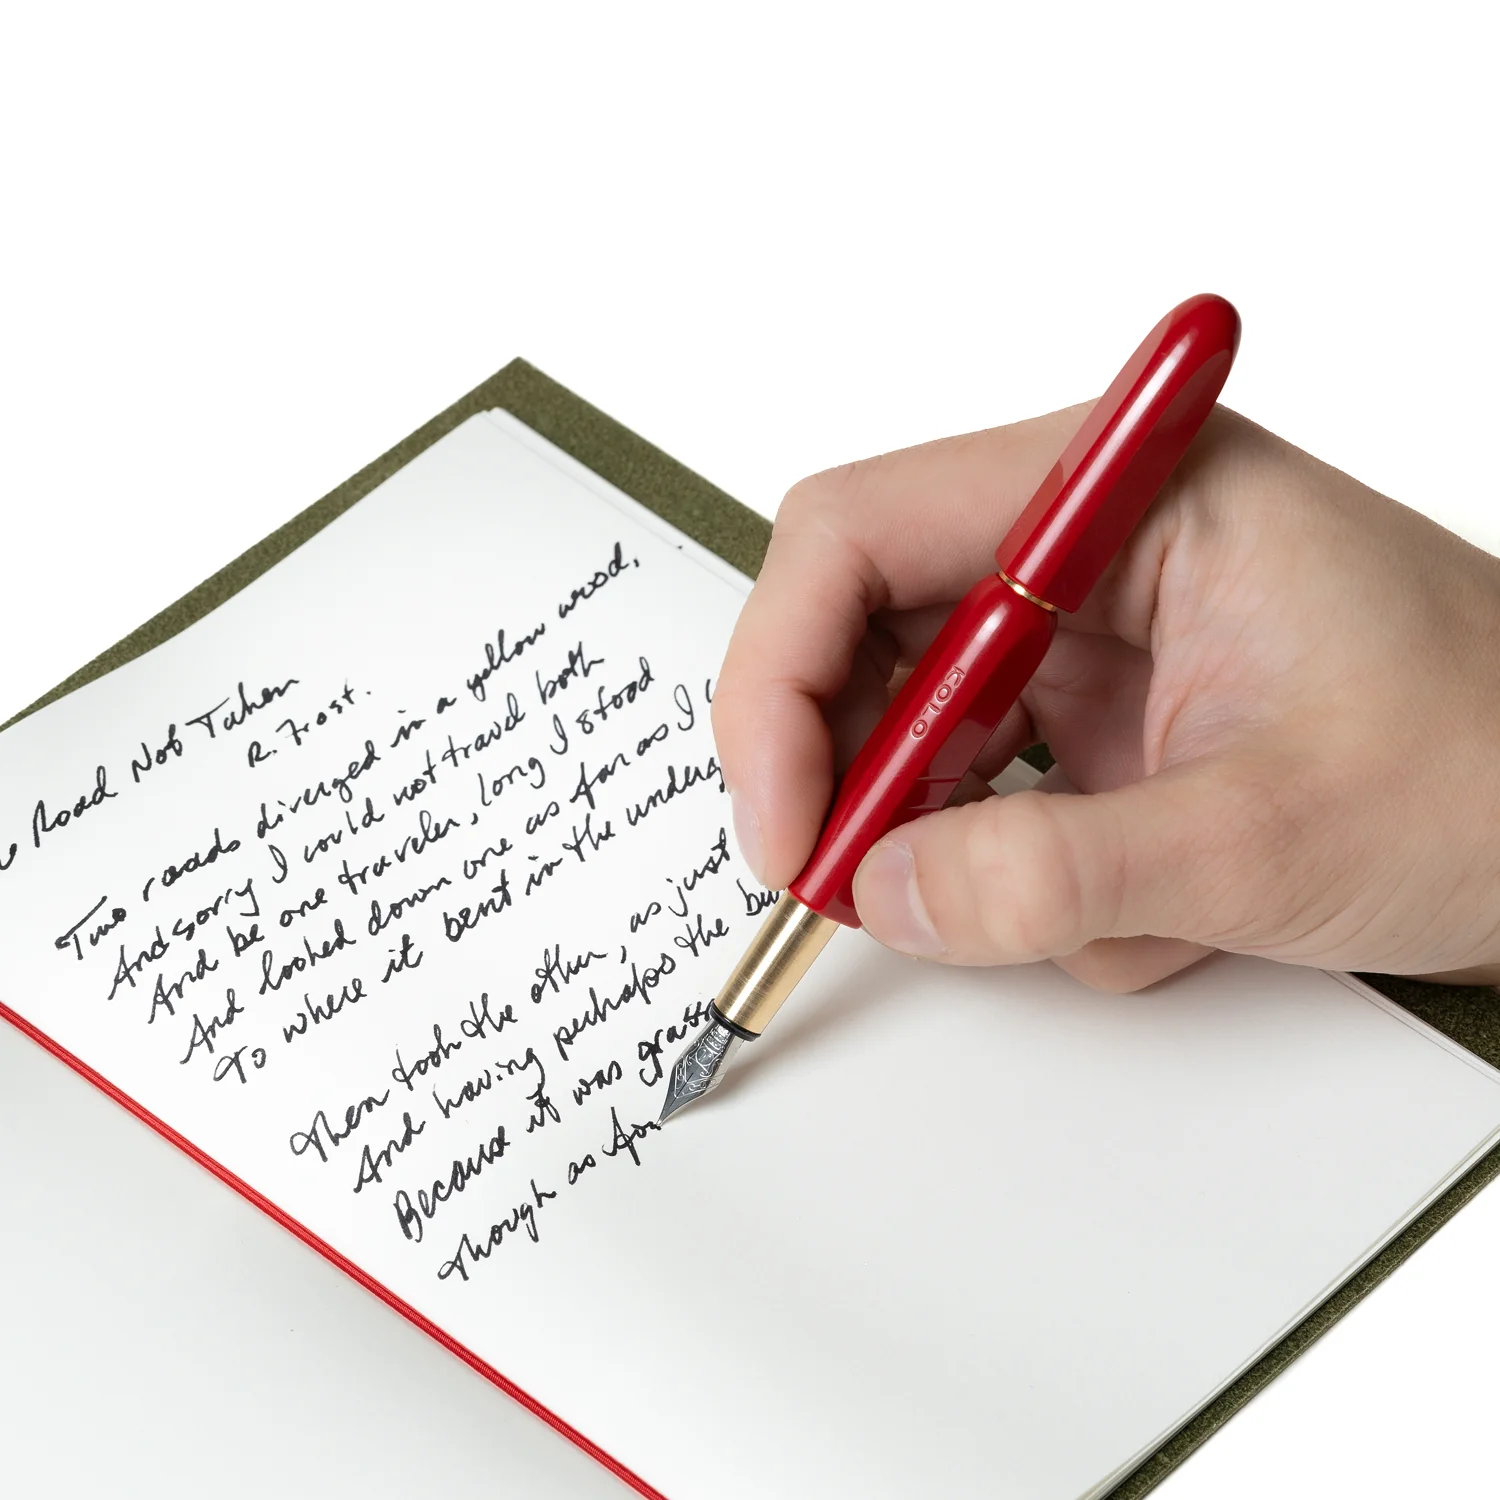 Road Not Taken
R. Frost.
Two roads diverged in a yellow wood,
And sorry I could not travel both
And be one traveler, long I stood
And looked down one as far as I c
To where it bent in the underg
Then took the other, as just
And having perhaps the
Because it was grass
Though as for
KOLO